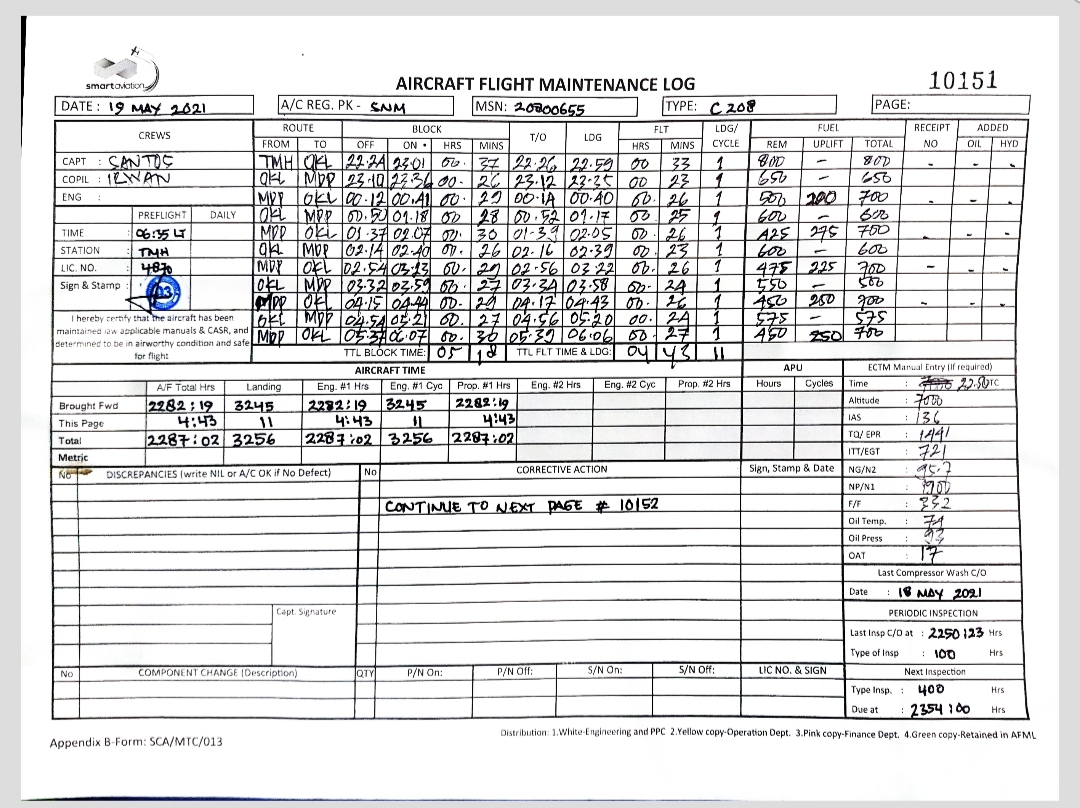 smartaviation
AIRCRAFT FLIGHT MAINTENANCE LOG 10151
DATE : 19 MAY 2021 A/C REG. PK - SNM MSN: 20800655 TYPE: C 208 PAGE:
CREWS ROUTE BLOCK T/O LDG FLT LDG/ CYCLE FUEL RECEIPT NO ADDED
FROM TO OFF ON HRS MINS HRS MINS REM UPLIFT TOTAL OIL HYD
CAPT : SANTOS TMH OKL 22.24 23.01 00. 37 22.26 22.59 00 33 1 800 - 800 - - -
COPIL : IRWAN OKL MDP 23.10 23.36 00. 26 23.12 23.35 00 23 1 650 - 650
ENG : MDP OKL 00.12 00.41 00. 29 00.14 00.40 00. 26 1 500 200 700 - - -
PREFLIGHT DAILY OKL MDP 00.50 01.18 00 28 00.52 01.17 00. 25 1 600 - 600
TIME : 06:35 LT MDP OKL 01.37 02.07 00. 30 01.39 02.05 00. 26 1 425 275 700 - - -
STATION : TMH OKL MDP 02.14 02.40 00. 26 02.16 02.39 00. 23 1 600 - 600
LIC. NO. : 4870 MDP OKL 02.54 03.23 00. 29 02.56 03.22 00. 26 1 475 225 700 - - -
Sign & Stamp : 03 OKL MDP 03.32 03.59 00. 27 03.34 03.58 00. 24 1 550 -
MDP OKL 04.15 04.44 00. 29 04.17 04.43 00. 26 1 450 250 700 - - -
I hereby certify that the aircraft has been OKL MDP 04.54 05.21 00. 27 04.56 05.20 00. 24 1 575 - 575
maintained iaw applicable manuals & CASR, and MDP OKL 05.37 06.07 00. 30 05.39 06.06 00. 27 1 450 250 700
determined to be in airworthy condition and safe
for flight TTL BLOCK TIME: 05 18 TTL FLT TIME & LDG: 04 43 11
AIRCRAFT TIME APU ECTM Manual Entry (If required)
A/F Total Hrs Landing Eng. #1 Hrs Eng. #1 Cyc Prop. #1 Hrs Eng. #2 Hrs Eng. #2 Cyc Prop. #2 Hrs Hours Cycles Time : 22.50 UTC
Brought Fwd 2282:19 3245 2282:19 3245 2282:19 Altitude : 7000
This Page 4:43 11 4:43 11 4:43 IAS : 136
Total 2287:02 3256 2287:02 3256 2287:02 TQ/ EPR : 1441
Metric ITT/EGT : 721
No DISCREPANCIES (write NIL or A/C OK if No Defect) No CORRECTIVE ACTION Sign, Stamp & Date NG/N2 : 95.7
NP/N1 : 1900
CONTINUE TO NEXT PAGE # 10152 F/F : 332
Oil Temp. : 74
Oil Press : 93
OAT : 17
Last Compressor Wash C/O
Date : 18 MAY 2021
Capt. Signature PERIODIC INSPECTION
Last Insp C/O at : 2250:23 Hrs
Type of Insp : 100 Hrs
No COMPONENT CHANGE (Description) QTY P/N On: P/N Off: S/N On: S/N Off: LIC NO. & SIGN Next Inspection
Type Insp. : 400 Hrs
Due at : 2354:00 Hrs
Appendix B-Form: SCA/MTC/013 Distribution: 1.White-Engineering and PPC 2.Yellow copy-Operation Dept. 3.Pink copy-Finance Dept. 4.Green copy-Retained in AFML